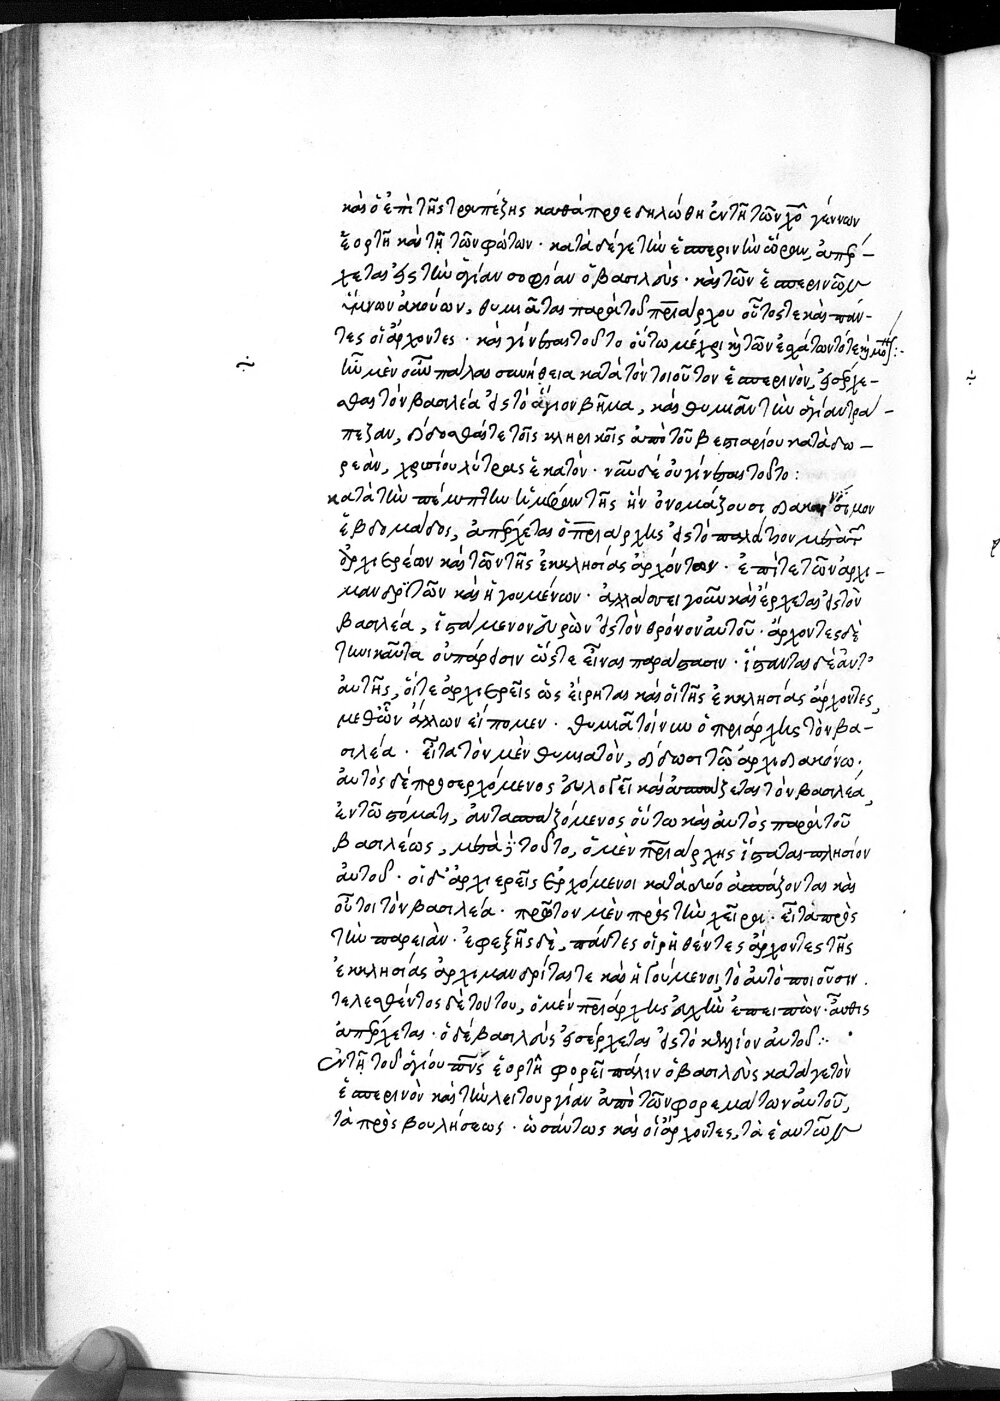 καὶ ὁ ἐπὶ τῆς τραπέζης καθὰ προεδηλώθη ἐν τῇ τῶν χῦ γέννων
ἑορτῇ καὶ τῇ τῶν φώτων · κατὰ δέ γε τὴν ἑσπερινὴν ὥραν, ἀπέρ–
χεται εἰς τὴν ἁγίαν σοφίαν ὁ βασιλεύς · καὶ τῶν ἑσπερινῶν
ὕμνων ἀκούων, θυμιᾶται παρὰ τοῦ πριάρχου οὗτός τε καὶ πάν–
τες οἱ ἄρχοντες · καὶ γίνεται τοῦτο οὕτω μέχρι καὶ τῶν ἐσχάτων τότε
ἦν μὲν οὖν πάλαι συνήθεια κατὰ τὸν τοιοῦτον ἑσπερινὸν, εἰσέρχε–
σθαι τὸν βασιλέα εἰς τὸ ἅγιον βῆμα, καὶ θυμιᾶν τὴν ἁγίαν τρά–
πεζαν, δίδοσθαί τε τοῖς κληρικοῖς ἀπὸ τοῦ βεστιαρίου κατὰ δω–
ρεὰν, χρυσίου λύτρας ἑκατόν · νῦν δὲ οὐ γίνεται τοῦτο :
κατὰ τὴν πέμπτην ἡμέραν τῆς ἣν ὀνομάζουσι διακαινήσιμον
ἑβδομάδος, ἀπέρχεται ὁ πριάρχης εἰς τὸ παλάτιον μετὰ τ
ἀρχιερέων καὶ τῶν τῆς ἐκκλησίας ἀρχόντων · ἐπί τε τῶν ἀρχι–
μανδριτῶν καὶ ἡγουμένων · ἀλλάσσει γοῦν καὶ ἔρχεται εἰς τὸν
βασιλέα, ἱστάμενον εὑρὼν εἰς τὸν θρόνον αὐτοῦ · ἄρχοντες δὲ
τηνικαῦτα οὐ πάρεισιν ὥστε εἶναι παράστασιν · ἵστανται δὲ ἀντ'
αὐτῆς, οἵ τε ἀρχιερεῖς ὡς εἴρηται καὶ οἱ τῆς ἐκκλησίας ἄρχοντες,
μεθ' ὧν ἄλλων εἴπομεν · θυμιᾶ τοίνυν ὁ πριάρχης τὸν βα–
σιλέα · εἶτα τὸν μὲν θυμιατὸν, δίδωσι τῷ ἀρχιδιακόνω ·
αὐτὸς δὲ προσερχόμενος εὐλογεῖ καὶ ἀσπάζεται τὸν βασιλέα,
ἐν τῶ στόματι, ἀντασπαζόμενος οὕτω καὶ αὐτὸς παρὰ τοῦ
βασιλέως, μετὰ τοῦτο, ὁ μὲν πριάρχης ἵσταται πλησίον
αὐτοῦ · οἱ δ' ἀρχιερεῖς ἐρχόμενοι κατὰ δύο ἀσπάζονται καὶ
οὗτοι τὸν βασιλέα · πρῶτον μὲν πρὸς τὴν χεῖρα · εἶτα πρὸς
τὴν παρειάν · ἐφεξῆς δὲ, πάντες οἱ ῥηθέντες ἄρχοντες τῆς
ἐκκλησίας ἀρχιμανδρίται τε καὶ ἡγούμενοι τὸ αὐτὸ ποιοῦσιν.
τελεσθέντος δὲ τούτου, ὁ μὲν πριάρχης εὐχὴν ἐπειπὼν · αὖθις
ἀπέρχεται · ὁ δὲ βασιλεὺς εἰσέρχεται εἰς τὸ κελλίον αὐτοῦ :·
ἐν τῇ τοῦ ἁγίου πνς ἑορτῇ φορεῖ πάλιν ὁ βασιλεὺς κατά γε τὸν
ἑσπερινὸν καὶ τὴν λειτουργίαν ἀπὸ τῶν φορεμάτων αὐτοῦ,
τὰ πρὸς βουλήσεως · ὡσαύτως καὶ οἱ ἄρχοντες, τὰ ἑαυτῶν